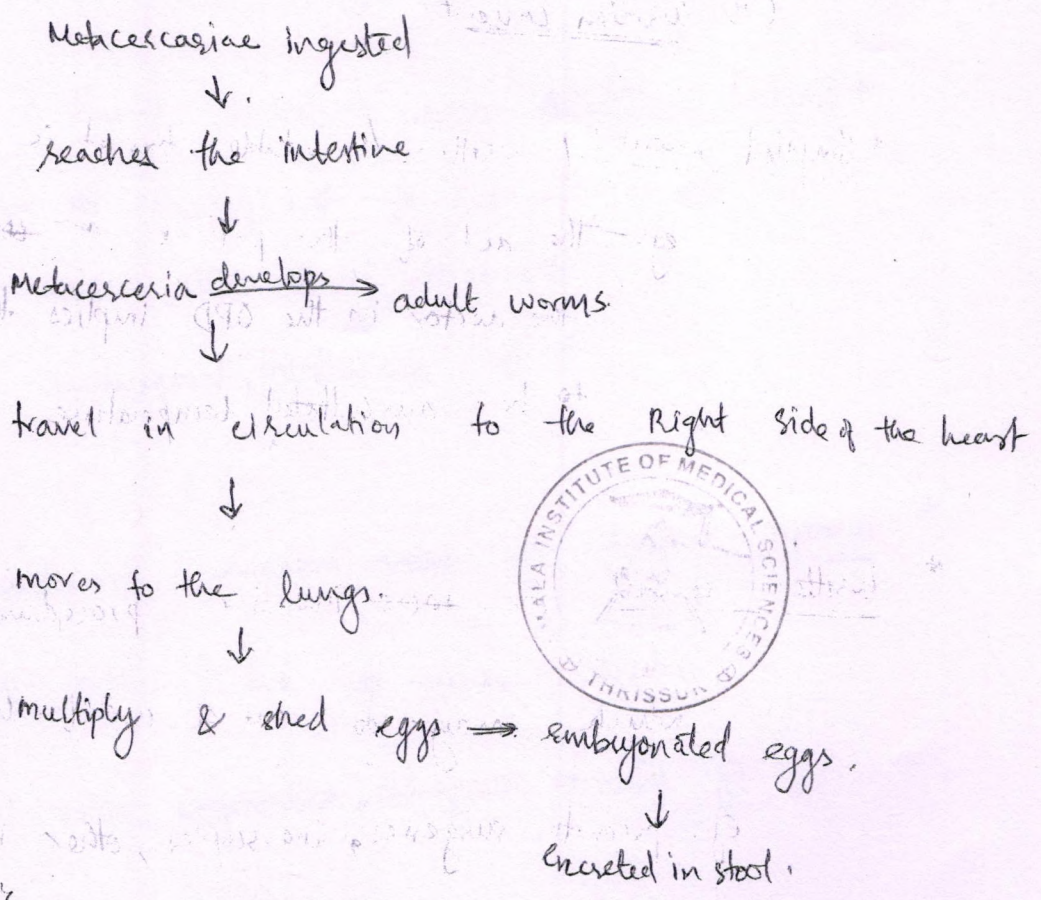 Metacercariae ingested
↓
reaches the intestine
↓
Metacerceria develops → adult worms.
↓
travel in circulation to the Right side of the heart
↓
moves to the lungs.
↓
multiply & shed eggs ⇒ embryonated eggs.
↓
Excreted in stool.
MALA INSTITUTE OF MEDICAL SCIENCES
THRISSUR